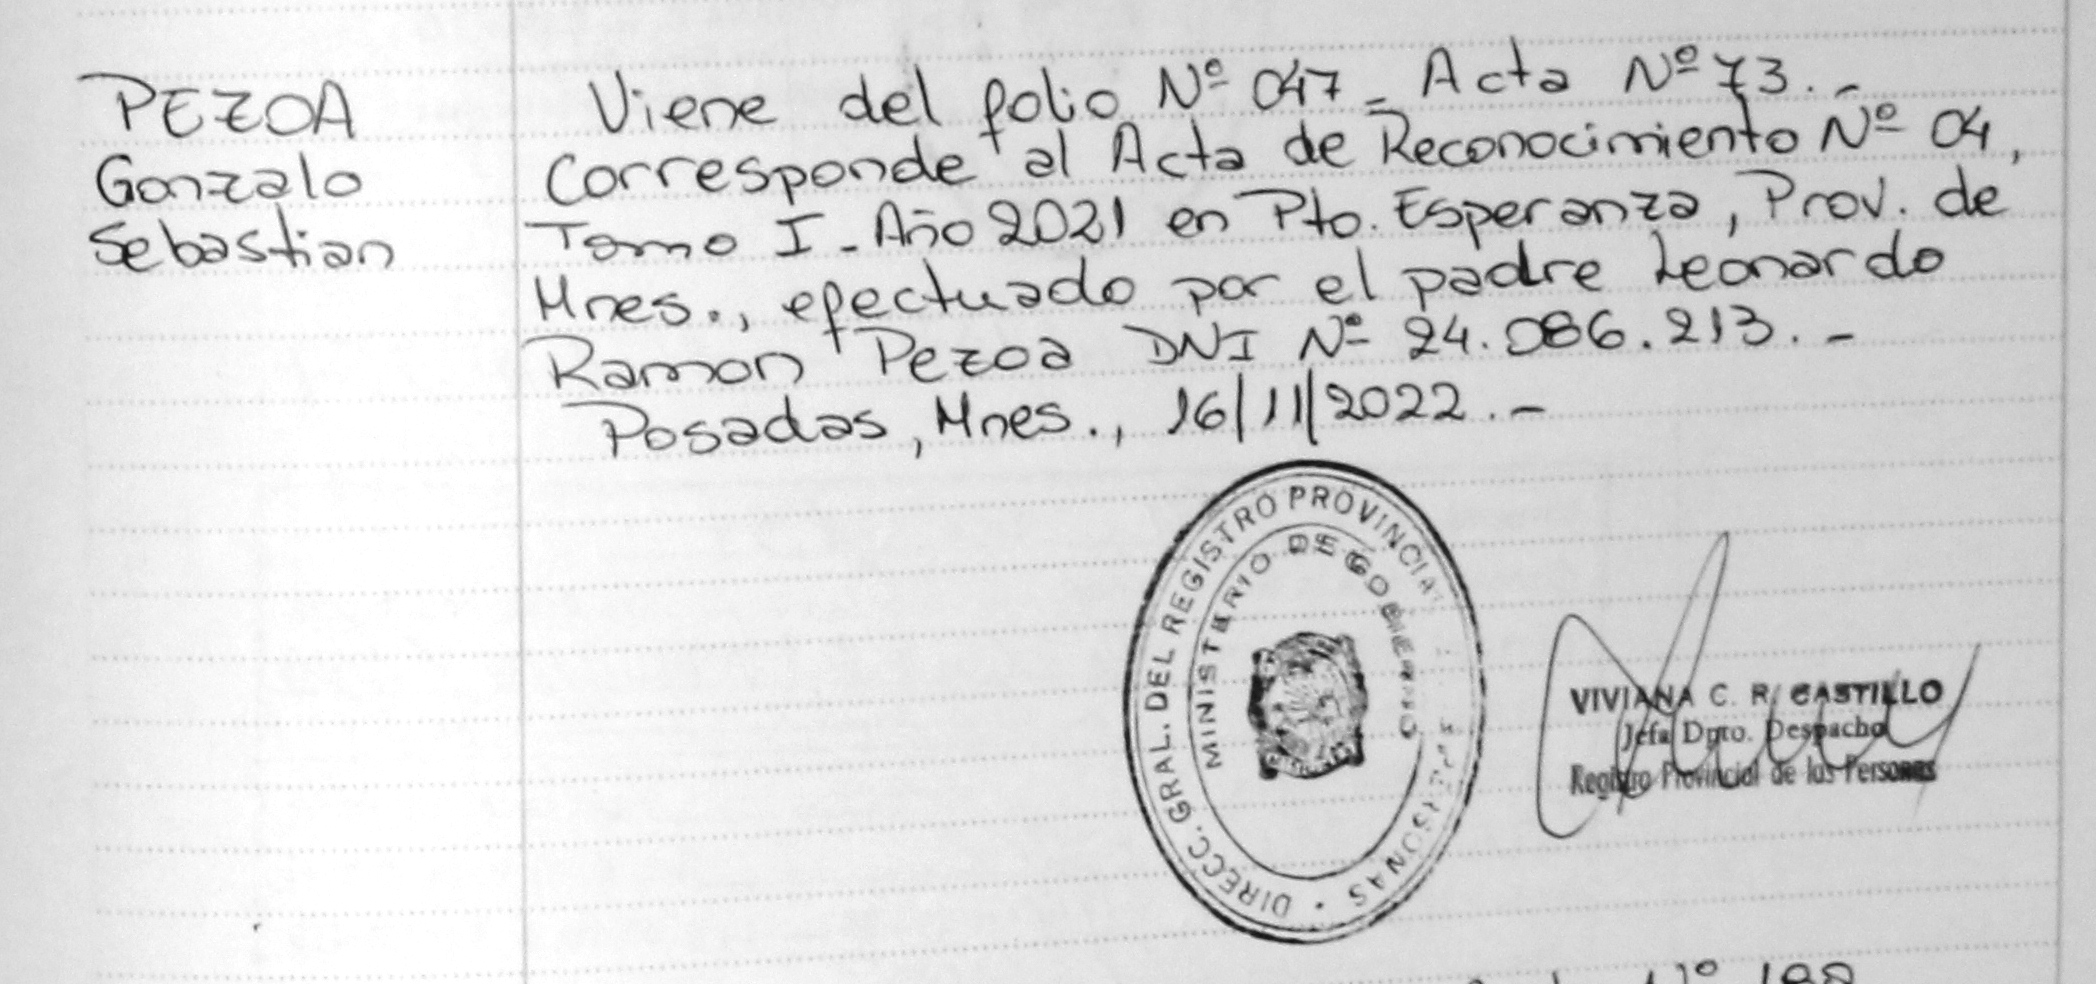 PEZOA
Gonzalo
Sebastian
Viene del folio Nº 047 - Acta Nº 73.-
Corresponde al Acta de Reconocimiento Nº 04,
Tomo I - Año 2021 en Pto. Esperanza, Prov. de
Mnes., efectuado por el padre Leonardo
Ramon Pezoa DNI Nº 24.086.213.-
Posadas, Mnes., 16/11/2022.-
DIRECC. GRAL. DEL REGISTRO PROVINCIAL PERSONAS
MINISTERIO DE GOBIERNO
VIVIANA C. R. CASTILLO
Jefa Dpto. Despacho
Registro Provincial de las Personas
Nº 188